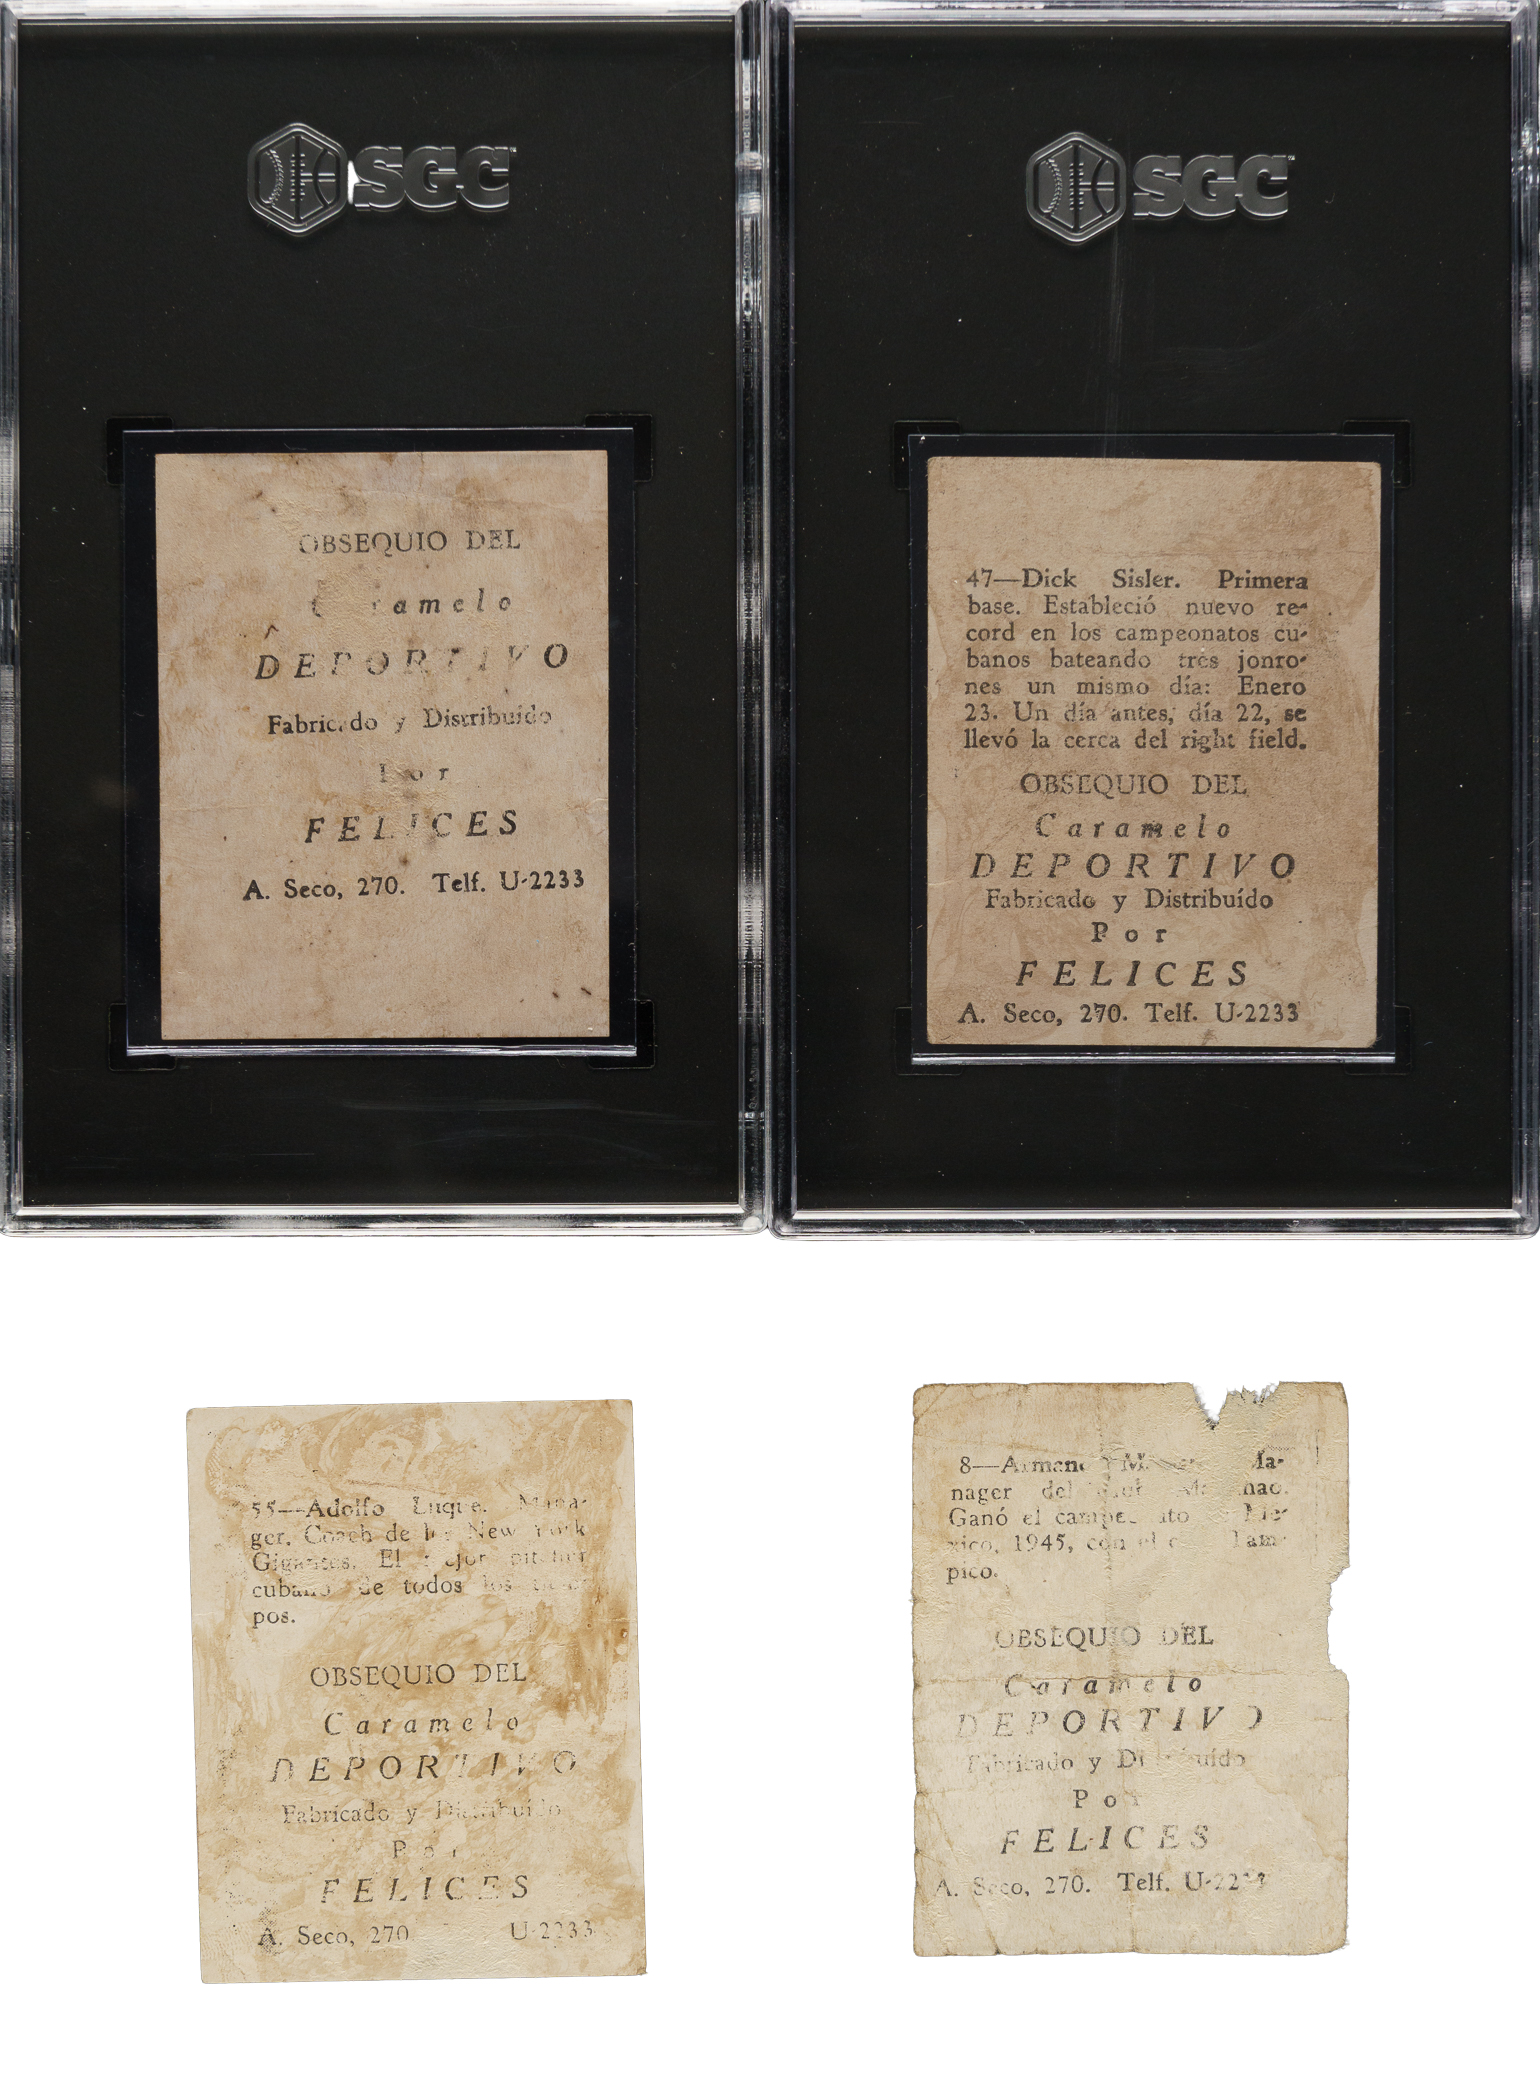 SGC
OBSEQUIO DEL
DEPORTIVO
Fabricado y Distribuído
Por
FELICES
A. Seco, 270. Telf. U-2233
SGC
47—Dick Sisler. Primera
base. Estableció nuevo re-
cord en los campeonatos cu-
banos bateando tres jonro-
nes un mismo día: Enero
23. Un día antes, día 22, se
llevó la cerca del right field.
OBSEQUIO DEL
Caramelo
DEPORTIVO
Fabricado y Distribuído
Por
FELICES
A. Seco, 270. Telf. U-2233
55—Adolfo Luque. Mana-
ger. Coach de los New York
Gigantes. El mejor pitcher
cubano de todos los
pos.
OBSEQUIO DEL
Caramelo
DEPORTIVO
Fabricado y Distribuído
Por
FELICES
A. Seco, 270 U-2233
8—
nager del
Ganó el
1945, con el
pico.
OBSEQUIO DEL
Caramelo
DEPORTIVO
Fabricado y
Por
FELICES
A. Seco, 270. Telf.